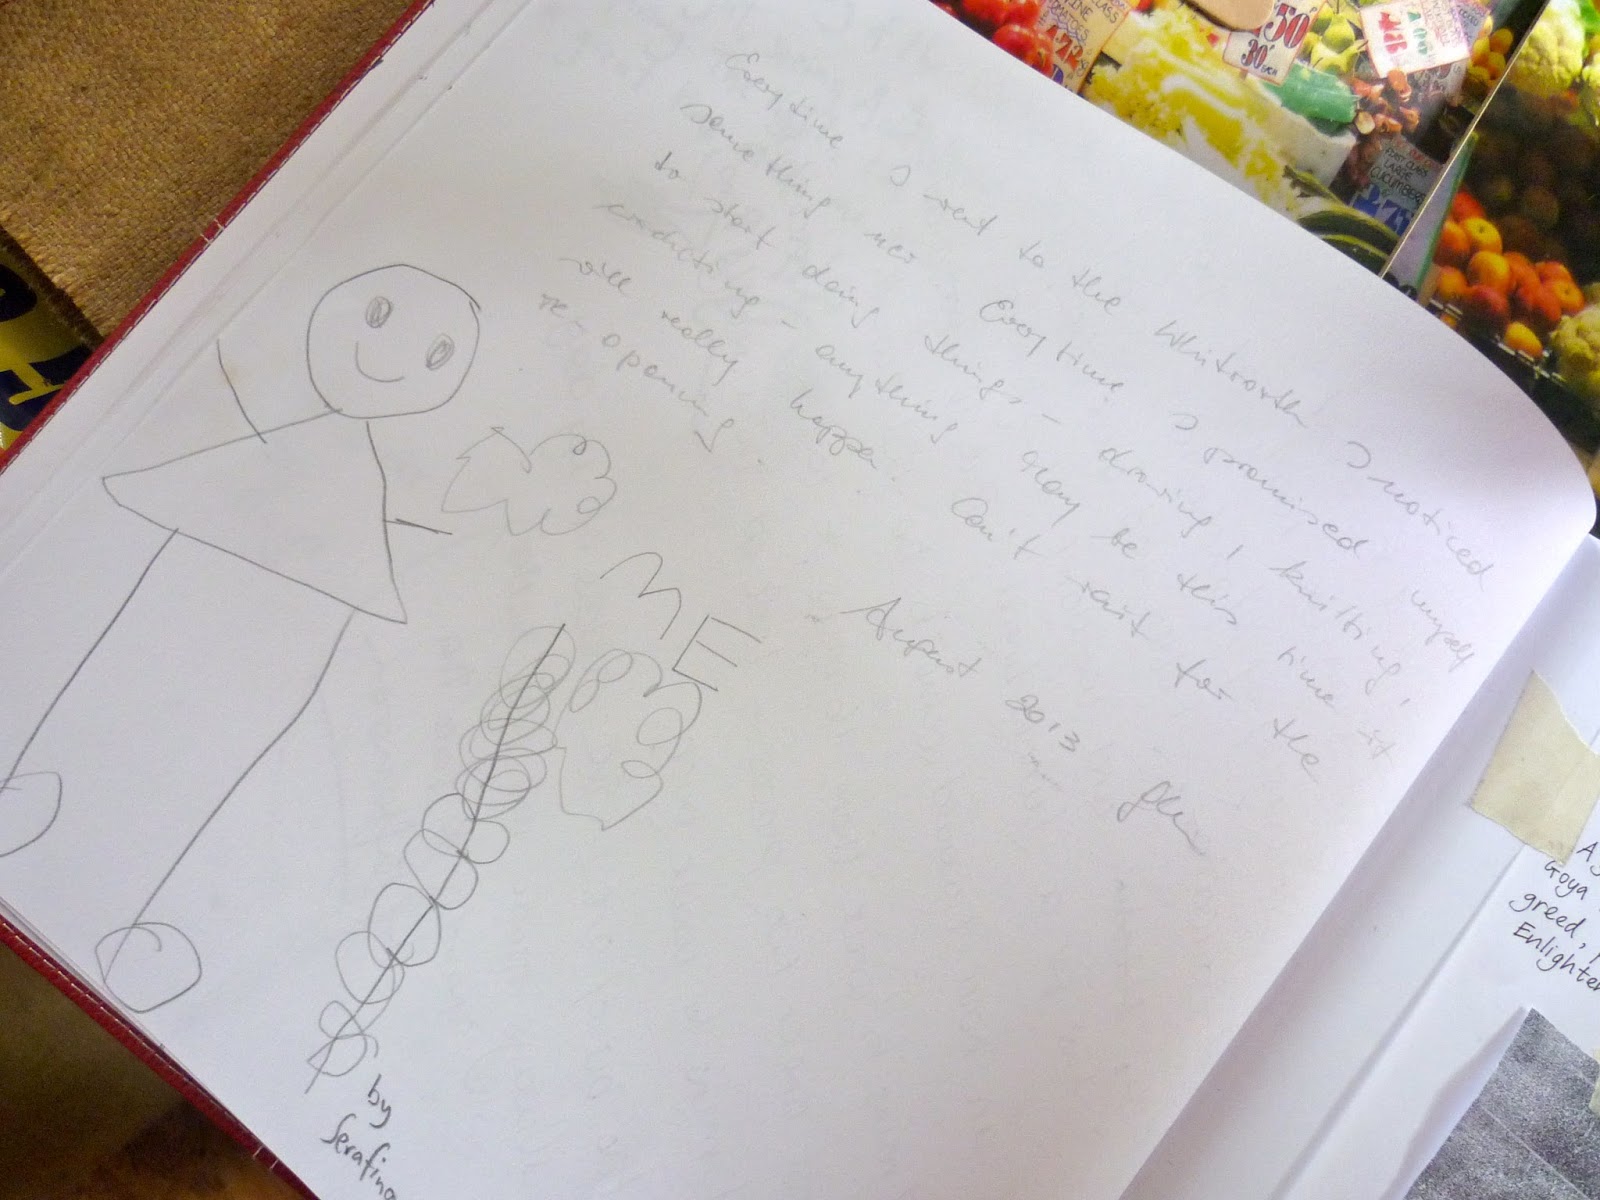 Every time I went to the Whitworth I noticed
something new. Every time I promised myself
to start doing things, - drawing, knitting,
- anything. May be this time it
will really happen. Can't wait for the
re-opening.
August 2013
ME
by
Serafina
50
30
LARGE
CUCUMBERS
Goya
greed,